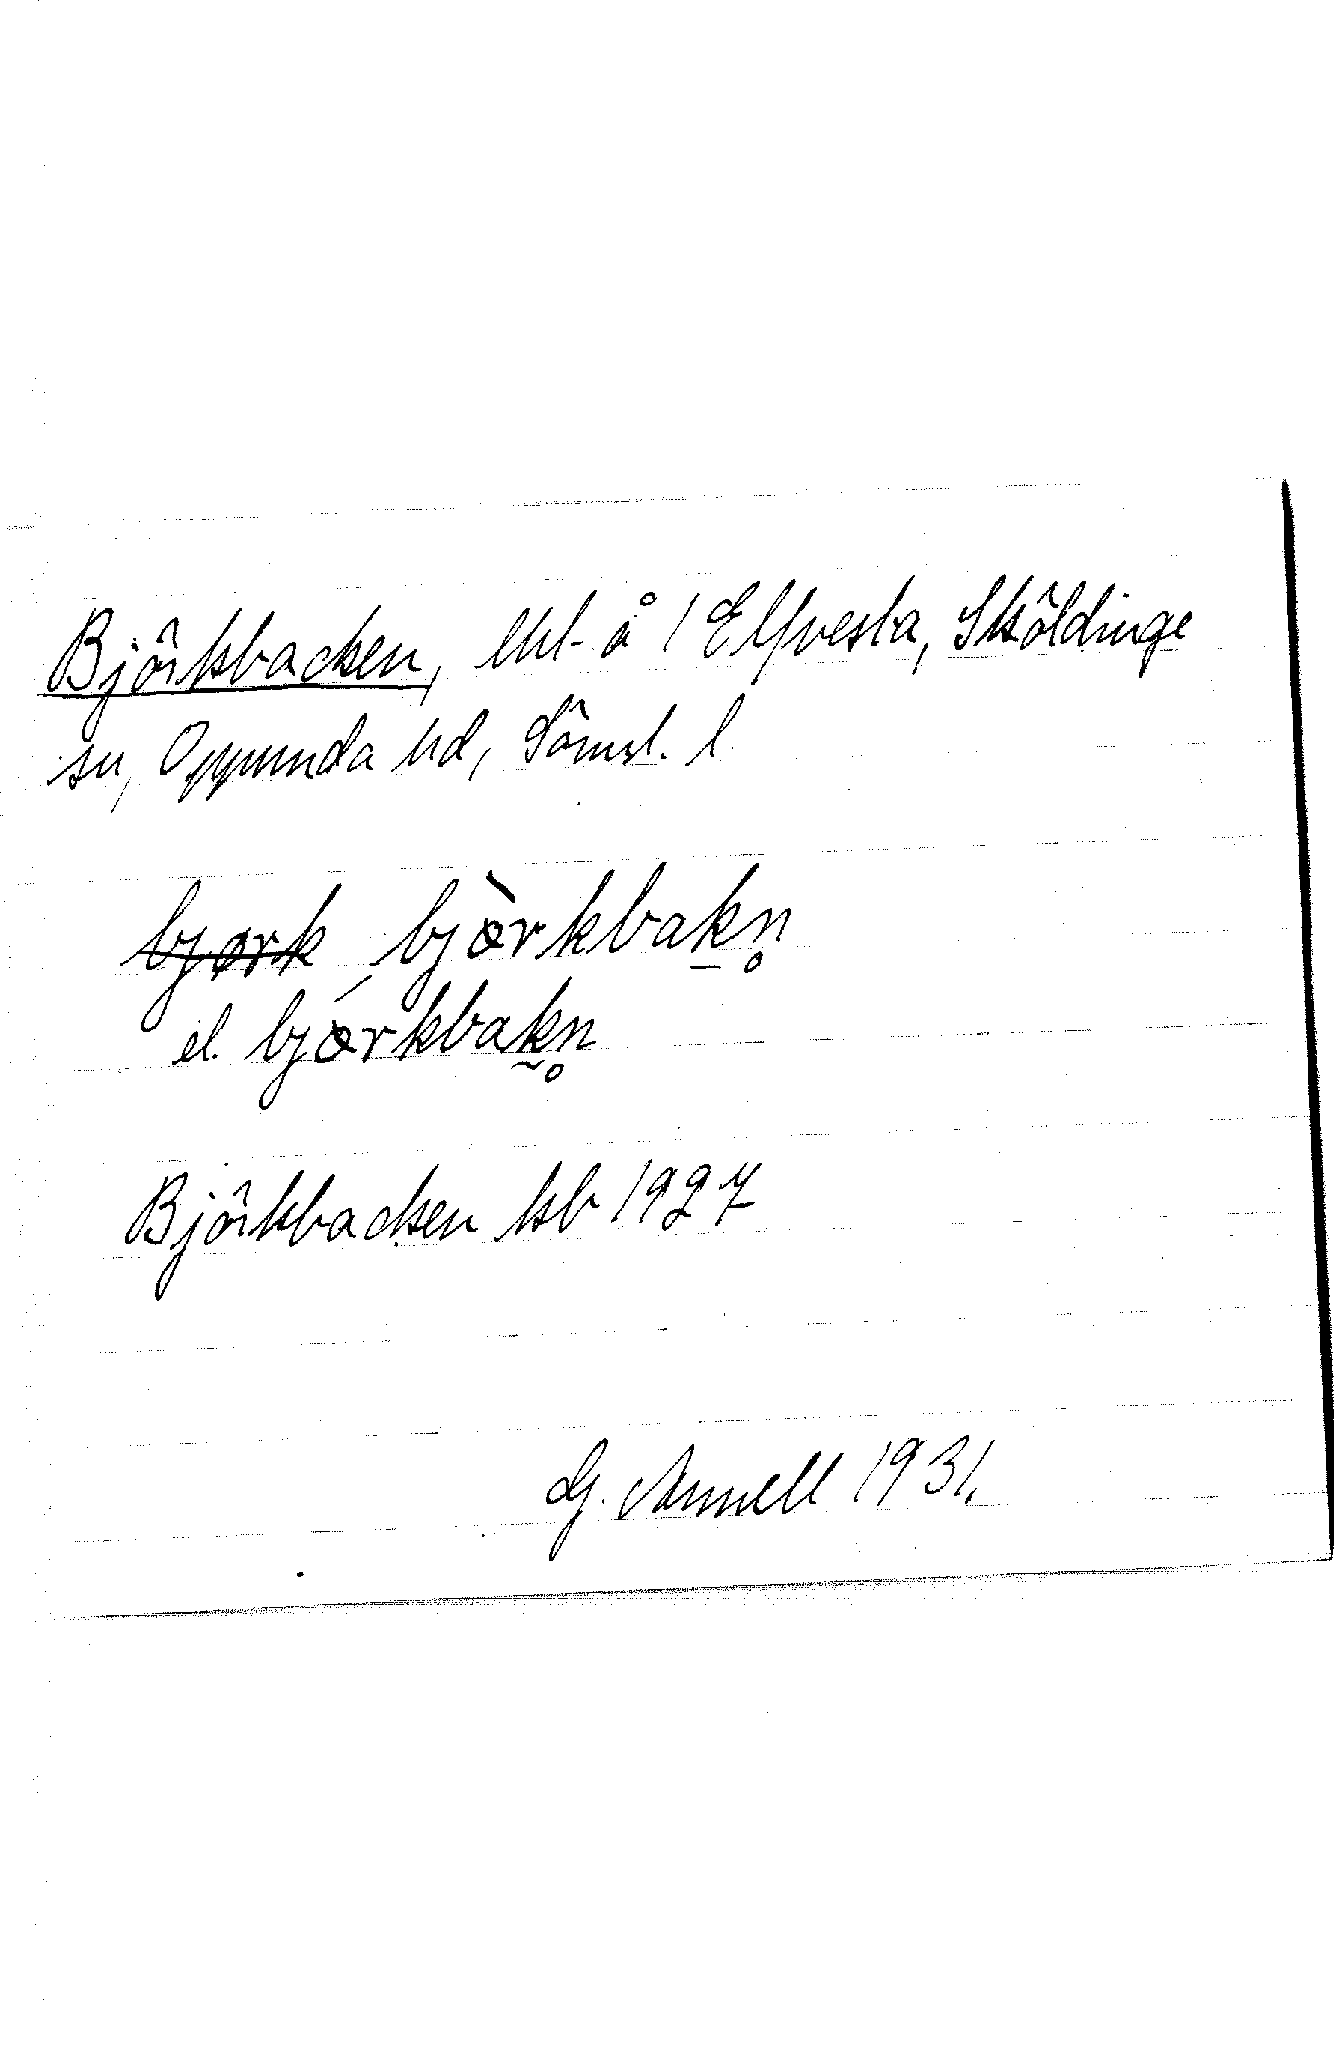 Björkbacken, lht å 1 Elfvesta, Sköldinge
sn, Oppunda hd, Söml. l
bjørk bjɵ̀rkbakn̥
el. bjɵ́rkbakn̥
Björkbacken kb 1927
G. Annell 1931.